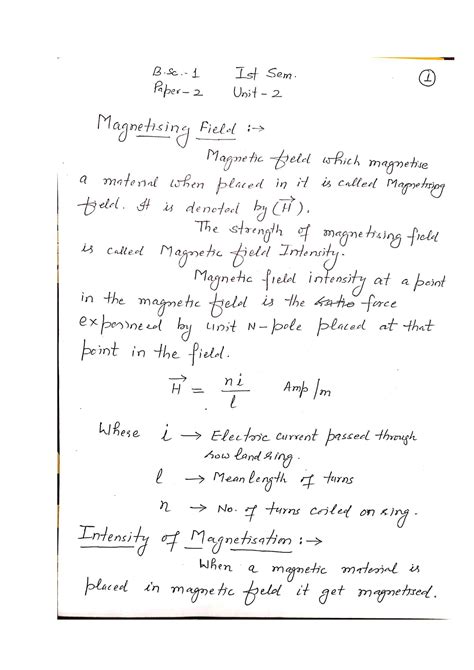 B.Sc.-1 Ist Sem. 1
Paper-2 Unit-2
Magnetising Field :→
Magnetic field which magnetise
a material when placed in it is called Magnetising
field. It is denoted by (H⃗).
The strength of magnetising field
is called Magnetic field Intensity.
Magnetic field intensity at a point
in the magnetic field is the force
experinced by unit N-pole placed at that
point in the field.
H⃗ = ni/l Amp/m
Where i → Electric current passed through
rowland ring.
l → Mean length of turns
n → No. of turns coiled on ring.
Intensity of Magnetisation :→
When a magnetic material is
placed in magnetic field it get magnetised.